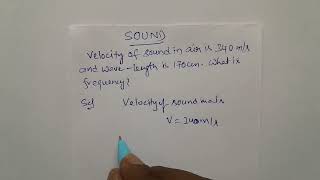 SOUND
Velocity of sound in air is 340 m/s
and wave-length is 170cm. What is
frequency?
Sol Velocity of sound
V = 340m/s